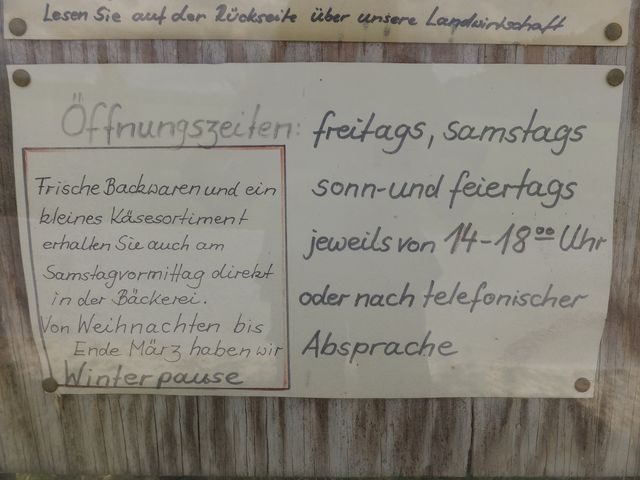 Lesen Sie auf der Rückseite über unsere Landwirtschaft
Öffnungszeiten: freitags, samstags
sonn- und feiertags
jeweils von 14-18⁰⁰ Uhr
oder nach telefonischer
Absprache
Frische Backwaren und ein
kleines Käsesortiment
erhalten Sie auch am
Samstagvormittag direkt
in der Bäckerei.
Von Weihnachten bis
Ende März haben wir
Winterpause